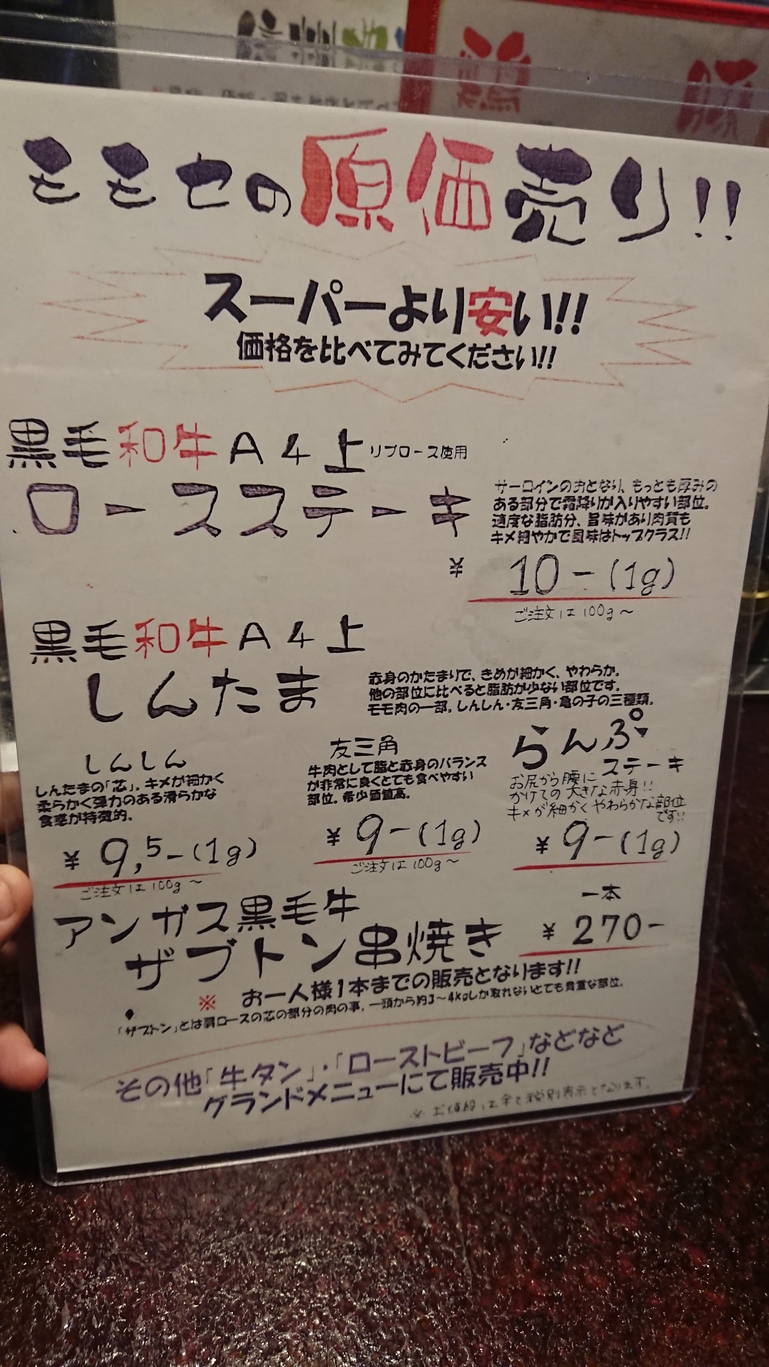 モモセの原価売り!!
スーパーより安い!!
価格を比べてみてください!!
黒毛和牛A4上 リブロース使用
ロースステーキ
サーロインのおとなり、もっとも厚みの
ある部分で霜降りが入りやすい部位。
適度な脂肪分、旨味があり肉質も
キメ細やかで風味はトップクラス!!
¥ 10-(1g)
ご注文は100g〜
黒毛和牛A4上
しんたま
赤身のかたまりで、きめが細かく、やわらか。
他の部位に比べると脂肪が少ない部位です。
モモ肉の一部。しんしん・友三角・亀の子の三種類。
しんしん
しんたまの「芯」。キメが細かく
柔らかく弾力のある滑らかな
食感が特徴的。
¥ 9,5-(1g)
ご注文は100g〜
友三角
牛肉として脂と赤身のバランス
が非常に良くとても食べやすい
部位。希少価値高。
¥ 9-(1g)
ご注文は100g〜
らんぷ
ステーキ
お尻から腰に
かけての大きな赤身!!
キメが細かくやわらかな部位
です!!
¥ 9-(1g)
アンガス黒毛牛
ザブトン串焼き
一本
¥ 270-
※ お一人様1本までの販売となります!!
「ザブトン」とは肩ロースの芯の部分の肉の事。一頭から約3〜4kgしか取れないとても貴重な部位。
その他「牛タン」・「ローストビーフ」などなど
グランドメニューにて販売中!!
※ お値段は全て税別表示となります。